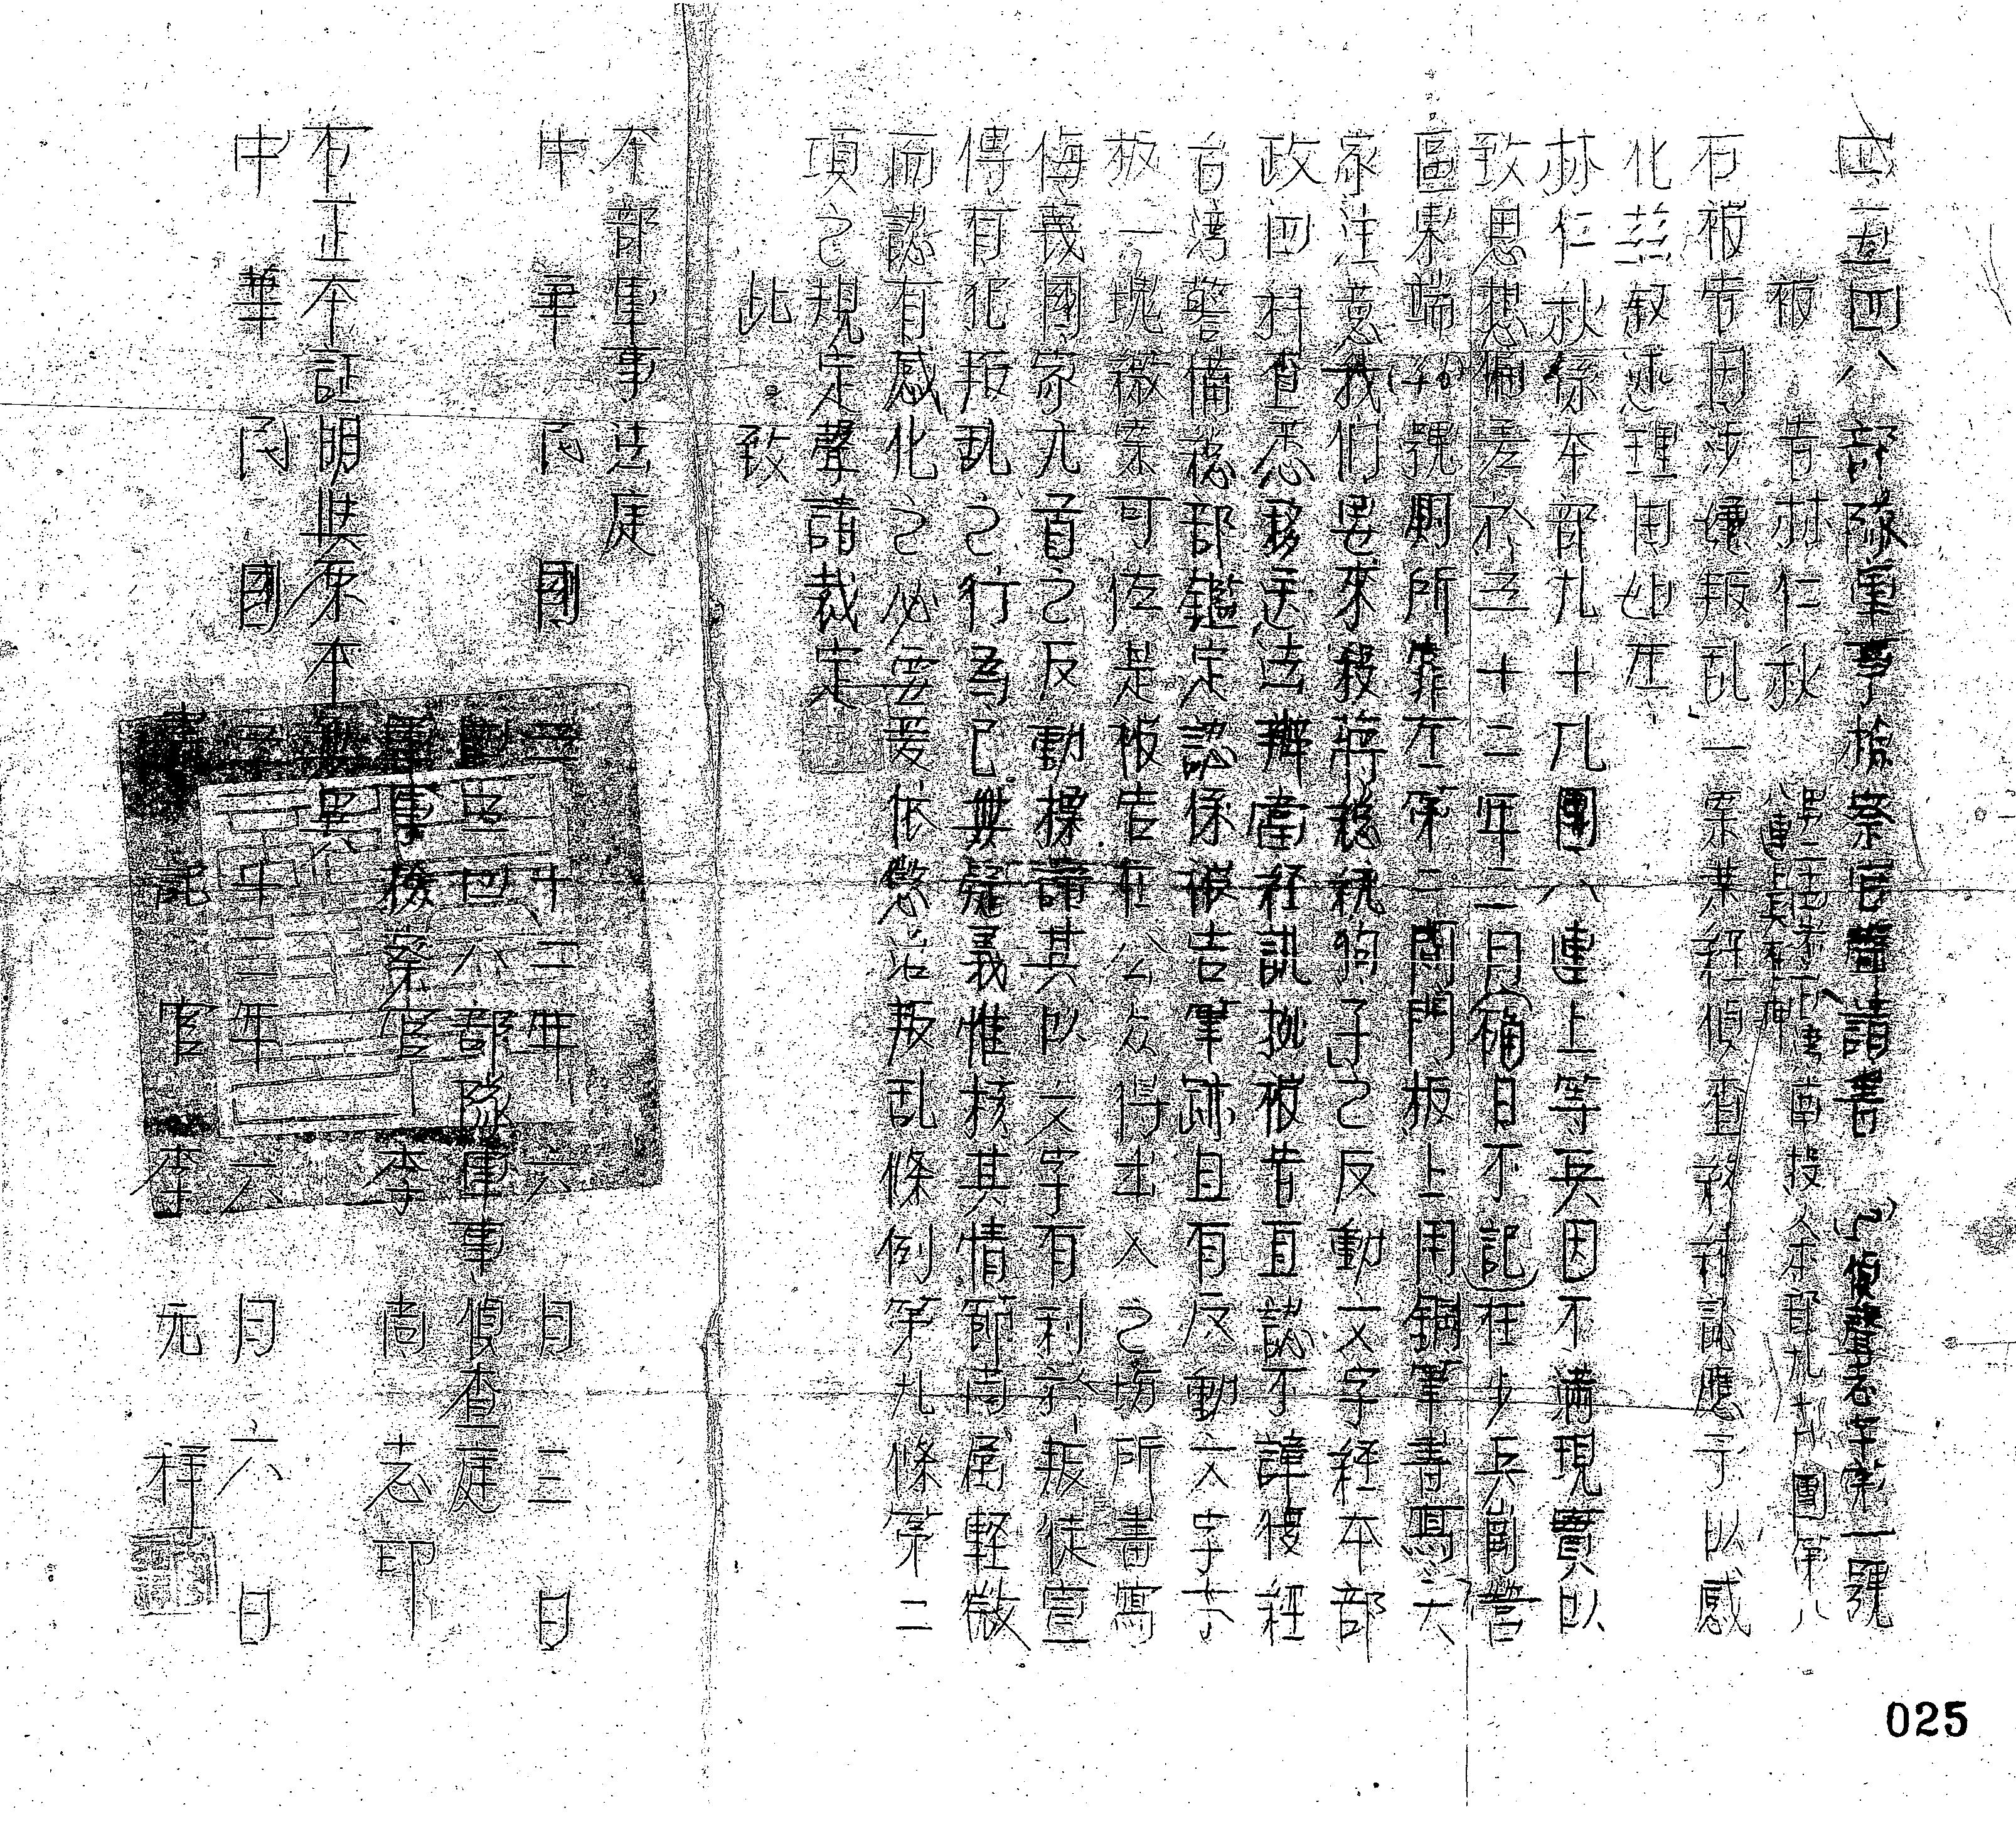 四五四八部隊軍事檢察官聲請書 偵聲字第一號
被 告 林仁秋
連上兵在押
石被告因涉嫌叛乱一案業經偵查終結認應予以感
化茲叙述理由如左
林仁秋係本部九十九團八連上等兵因不滿現實以
致思想偏差於五十二年二月(確日不記)在步兵崗營
區東端(40)號厠所靠左第二間門板上用鋼筆書寫「大
家注意我們要來殺蔣總統狗子」之反動文字經本部
政四科查悉移送法辦當經訊據被告直認不諱復經
台湾警備總部鑑定認係被告筆跡且有反動文字字
板一塊檄案可佐是被告在公众得出入之場所書寫
侮蔑國家元首之反動標語其以文字有利於叛徒宣
傳有犯叛乱之行為已無疑義惟核其情節尚属輕微
而認有感化之必要爰依懲治叛乱條例第九條第二
項之規定聲請裁定
此 致
本部軍事法庭
中 華 民 國 五 十 三 年 六 月 三 日
四五四八部隊軍事偵查庭
軍事檢察官 李 尚 志 印
右正本証明與原本無異
中 華 民 國 五 十 三 年 六 月 六 日
書 記 官 李 元 祥
025